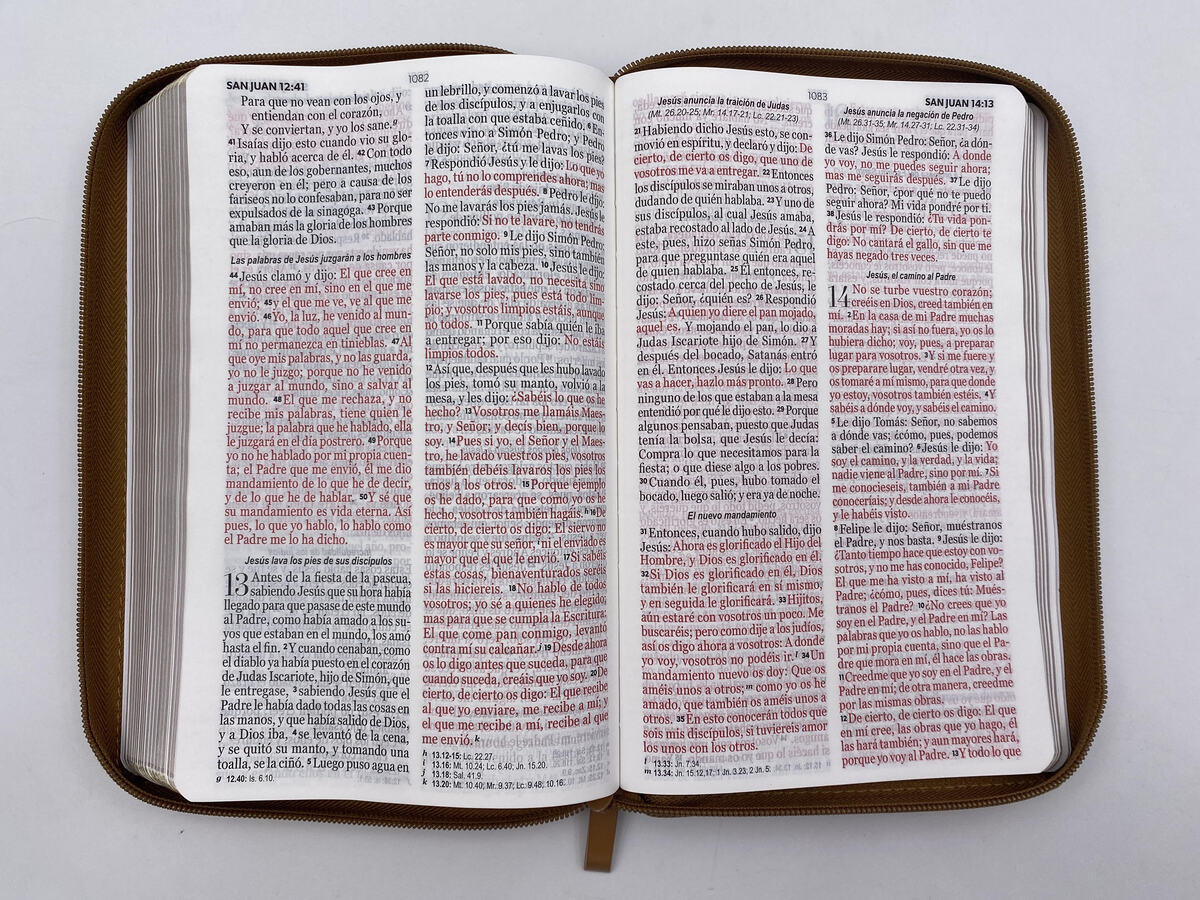 SAN JUAN 12:41
1082
Para que no vean con los ojos, y
entiendan con el corazón,
Y se conviertan, y yo los sane.g
41 Isaías dijo esto cuando vio su glo-
ria, y habló acerca de él. 42 Con todo
eso, aun de los gobernantes, muchos
creyeron en él; pero a causa de los
fariseos no lo confesaban, para no ser
expulsados de la sinagoga. 43 Porque
amaban más la gloria de los hombres
que la gloria de Dios.
Las palabras de Jesús juzgarán a los hombres
44 Jesús clamó y dijo: El que cree en
mí, no cree en mí, sino en el que me
envió; 45 y el que me ve, ve al que me
envió. 46 Yo, la luz, he venido al mun-
do, para que todo aquel que cree en
mí no permanezca en tinieblas. 47 Al
que oye mis palabras, y no las guarda,
yo no le juzgo; porque no he venido
a juzgar al mundo, sino a salvar al
mundo. 48 El que me rechaza, y no
recibe mis palabras, tiene quien le
juzgue; la palabra que he hablado, ella
le juzgará en el día postrero. 49 Porque
yo no he hablado por mi propia cuen-
ta; el Padre que me envió, él me dio
mandamiento de lo que he de decir,
y de lo que he de hablar. 50 Y sé que
su mandamiento es vida eterna. Así
pues, lo que yo hablo, lo hablo como
el Padre me lo ha dicho.
Jesús lava los pies de sus discípulos
13 Antes de la fiesta de la pascua,
sabiendo Jesús que su hora había
llegado para que pasase de este mundo
al Padre, como había amado a los su-
yos que estaban en el mundo, los amó
hasta el fin. 2 Y cuando cenaban, como
el diablo ya había puesto en el corazón
de Judas Iscariote, hijo de Simón, que
le entregase, 3 sabiendo Jesús que el
Padre le había dado todas las cosas en
las manos, y que había salido de Dios,
y a Dios iba, 4 se levantó de la cena,
y se quitó su manto, y tomando una
toalla, se la ciñó. 5 Luego puso agua en
g 12.40: Is. 6.10.
un lebrillo, y comenzó a lavar los pies
de los discípulos, y a enjugarlos con
la toalla con que estaba ceñido. 6 En-
tonces vino a Simón Pedro; y Pedro
le dijo: Señor, ¿tú me lavas los pies?
7 Respondió Jesús y le dijo: Lo que yo
hago, tú no lo comprendes ahora; mas
lo entenderás después. 8 Pedro le dijo:
No me lavarás los pies jamás. Jesús le
respondió: Si no te lavare, no tendrás
parte conmigo. 9 Le dijo Simón Pedro:
Señor, no sólo mis pies, sino también
las manos y la cabeza. 10 Jesús le dijo:
El que está lavado, no necesita sino
lavarse los pies, pues está todo lim-
pio; y vosotros limpios estáis, aunque
no todos. 11 Porque sabía quién le iba
a entregar; por eso dijo: No estáis
limpios todos.
12 Así que, después que les hubo lavado
los pies, tomó su manto, volvió a la
mesa, y les dijo: ¿Sabéis lo que os he
hecho? 13 Vosotros me llamáis Maes-
tro, y Señor; y decís bien, porque lo
soy. 14 Pues si yo, el Señor y el Maes-
tro, he lavado vuestros pies, vosotros
también debéis lavaros los pies los
unos a los otros. 15 Porque ejemplo
os he dado, para que como yo os he
hecho, vosotros también hagáis. h 16 De
cierto, de cierto os digo: El siervo no
es mayor que su señor, i ni el enviado es
mayor que el que le envió. 17 Si sabéis
estas cosas, bienaventurados seréis
si las hiciereis. 18 No hablo de todos
vosotros; yo sé a quienes he elegido,
mas para que se cumpla la Escritura:
El que come pan conmigo, levantó
contra mí su calcañar. j 19 Desde ahora
os lo digo antes que suceda, para que
cuando suceda, creáis que yo soy. 20 De
cierto, de cierto os digo: El que recibe
al que yo enviare, me recibe a mí; y
el que me recibe a mí, recibe al que
me envió. k
h 13.12-15: Lc. 22.27.
i 13.16: Mt. 10.24; Lc. 6.40; Jn. 15.20.
j 13.18: Sal. 41.9.
k 13.20: Mt. 10.40; Mr. 9.37; Lc. 9.48; 10.16.
1083
SAN JUAN 14:13
Jesús anuncia la traición de Judas
(Mt. 26.20-25; Mr. 14.17-21; Lc. 22.21-23)
21 Habiendo dicho Jesús esto, se con-
movió en espíritu, y declaró y dijo: De
cierto, de cierto os digo, que uno de
vosotros me va a entregar. 22 Entonces
los discípulos se miraban unos a otros,
dudando de quién hablaba. 23 Y uno de
sus discípulos, al cual Jesús amaba,
estaba recostado al lado de Jesús. 24 A
este, pues, hizo señas Simón Pedro,
para que preguntase quién era aquel
de quien hablaba. 25 Él entonces, re-
costado cerca del pecho de Jesús, le
dijo: Señor, ¿quién es? 26 Respondió
Jesús: A quien yo diere el pan mojado,
aquel es. Y mojando el pan, lo dio a
Judas Iscariote hijo de Simón. 27 Y
después del bocado, Satanás entró
en él. Entonces Jesús le dijo: Lo que
vas a hacer, hazlo más pronto. 28 Pero
ninguno de los que estaban a la mesa
entendió por qué le dijo esto. 29 Porque
algunos pensaban, puesto que Judas
tenía la bolsa, que Jesús le decía:
Compra lo que necesitamos para la
fiesta; o que diese algo a los pobres.
30 Cuando él, pues, hubo tomado el
bocado, luego salió; y era ya de noche.
El nuevo mandamiento
31 Entonces, cuando hubo salido, dijo
Jesús: Ahora es glorificado el Hijo del
Hombre, y Dios es glorificado en él.
32 Si Dios es glorificado en él, Dios
también le glorificará en sí mismo,
y en seguida le glorificará. 33 Hijitos,
aún estaré con vosotros un poco. Me
buscaréis; pero como dije a los judíos,
así os digo ahora a vosotros: A donde
yo voy, vosotros no podéis ir. l 34 Un
mandamiento nuevo os doy: Que os
améis unos a otros; m como yo os he
amado, que también os améis unos a
otros. 35 En esto conocerán todos que
sois mis discípulos, si tuviereis amor
los unos con los otros.
l 13.33: Jn. 7.34.
m 13.34: Jn. 15.12,17; 1 Jn. 3.23; 2 Jn. 5.
Jesús anuncia la negación de Pedro
(Mt. 26.31-35; Mr. 14.27-31; Lc. 22.31-34)
36 Le dijo Simón Pedro: Señor, ¿a dón-
de vas? Jesús le respondió: A donde
yo voy, no me puedes seguir ahora;
mas me seguirás después. 37 Le dijo
Pedro: Señor, ¿por qué no te puedo
seguir ahora? Mi vida pondré por ti.
38 Jesús le respondió: ¿Tu vida pon-
drás por mí? De cierto, de cierto te
digo: No cantará el gallo, sin que me
hayas negado tres veces.
Jesús, el camino al Padre
14 No se turbe vuestro corazón;
creéis en Dios, creed también en
mí. 2 En la casa de mi Padre muchas
moradas hay; si así no fuera, yo os lo
hubiera dicho; voy, pues, a preparar
lugar para vosotros. 3 Y si me fuere y
os preparare lugar, vendré otra vez, y
os tomaré a mí mismo, para que donde
yo estoy, vosotros también estéis. 4 Y
sabéis a dónde voy, y sabéis el camino.
5 Le dijo Tomás: Señor, no sabemos
a dónde vas; ¿cómo, pues, podemos
saber el camino? 6 Jesús le dijo: Yo
soy el camino, y la verdad, y la vida;
nadie viene al Padre, sino por mí. 7 Si
me conocieseis, también a mi Padre
conoceríais; y desde ahora le conocéis,
y le habéis visto.
8 Felipe le dijo: Señor, muéstranos
el Padre, y nos basta. 9 Jesús le dijo:
¿Tanto tiempo hace que estoy con vo-
sotros, y no me has conocido, Felipe?
El que me ha visto a mí, ha visto al
Padre; ¿cómo, pues, dices tú: Mués-
tranos el Padre? 10 ¿No crees que yo
soy en el Padre, y el Padre en mí? Las
palabras que yo os hablo, no las hablo
por mi propia cuenta, sino que el Pa-
dre que mora en mí, él hace las obras.
11 Creedme que yo soy en el Padre, y el
Padre en mí; de otra manera, creedme
por las mismas obras.
12 De cierto, de cierto os digo: El que
en mí cree, las obras que yo hago, él
las hará también; y aun mayores hará,
porque yo voy al Padre. 13 Y todo lo que